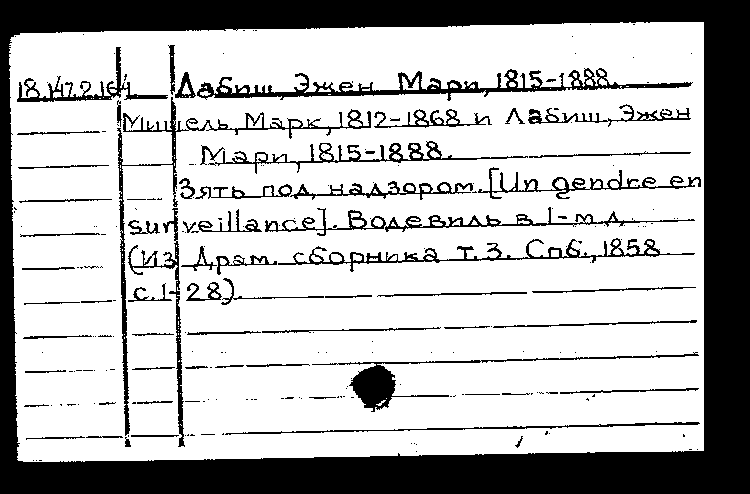 18.147.2.164 Лабиш, Эжен Мари, 1815-1888.
Мишель, Марк, 1812-1868 и Лабиш, Эжен
Мари, 1815-1888.
Зять под надзором. [Un gendre en
surveillance]. Водевиль в 1-м д.
(Из Драм. сборника т. 3. Спб., 1858
с. 1-28).